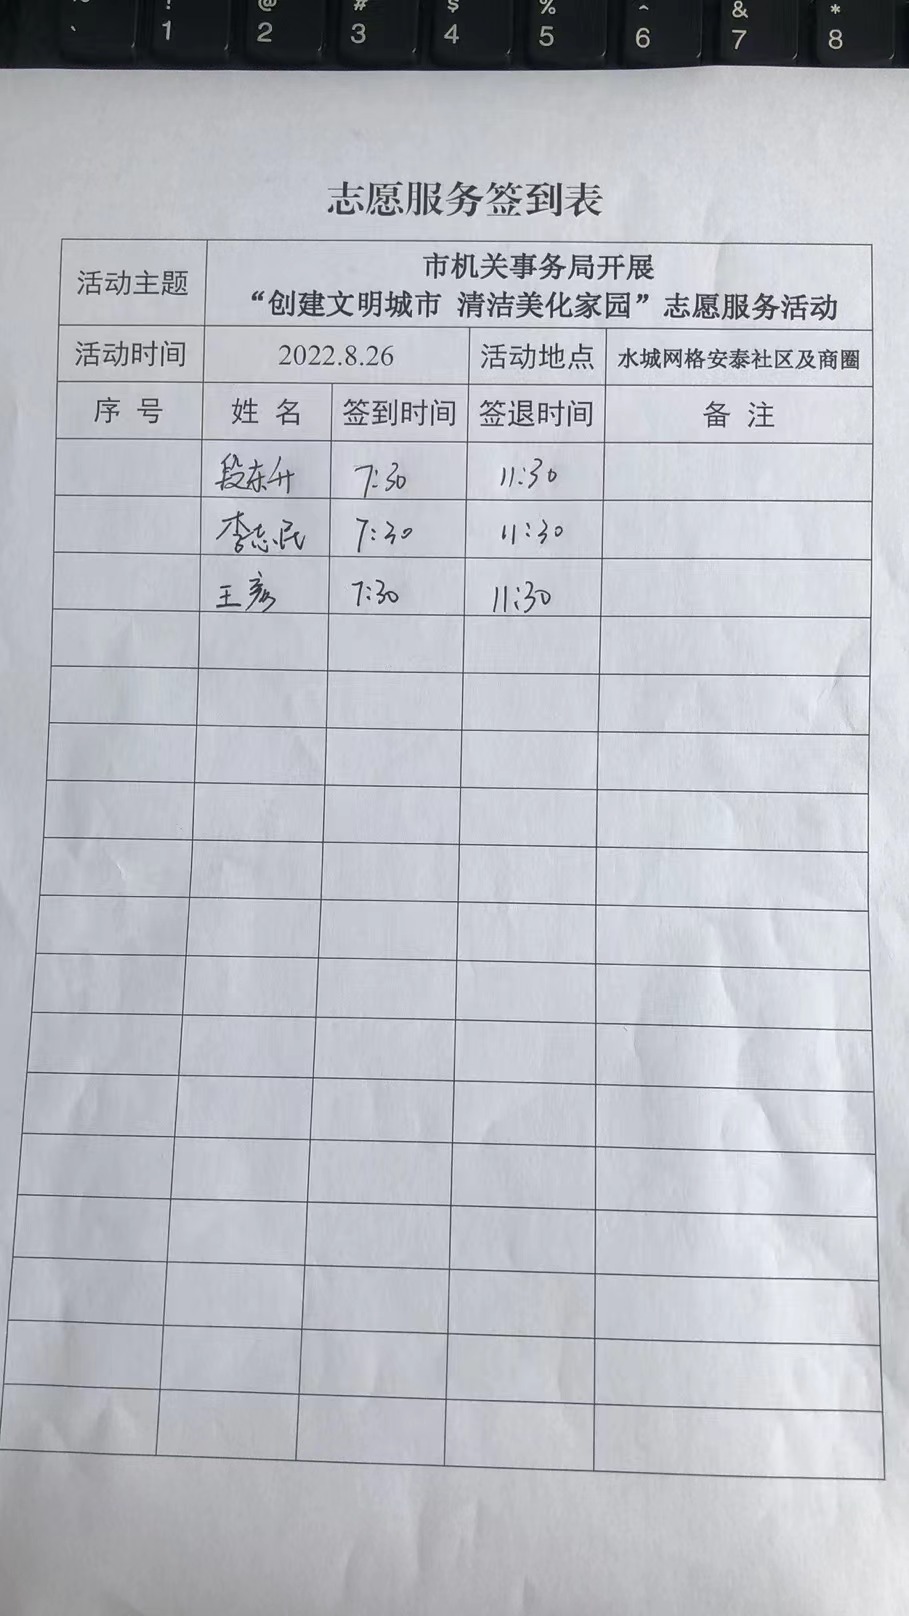 ! @ # $ % ^ & *
` 1 2 3 4 5 6 7 8
志愿服务签到表
活动主题 市机关事务局开展
“创建文明城市 清洁美化家园”志愿服务活动
活动时间 2022.8.26 活动地点 水城网格安泰社区及商圈
序号 姓名 签到时间 签退时间 备注
段东升 7:30 11:30
李志民 7:30 11:30
王彦 7:30 11:30